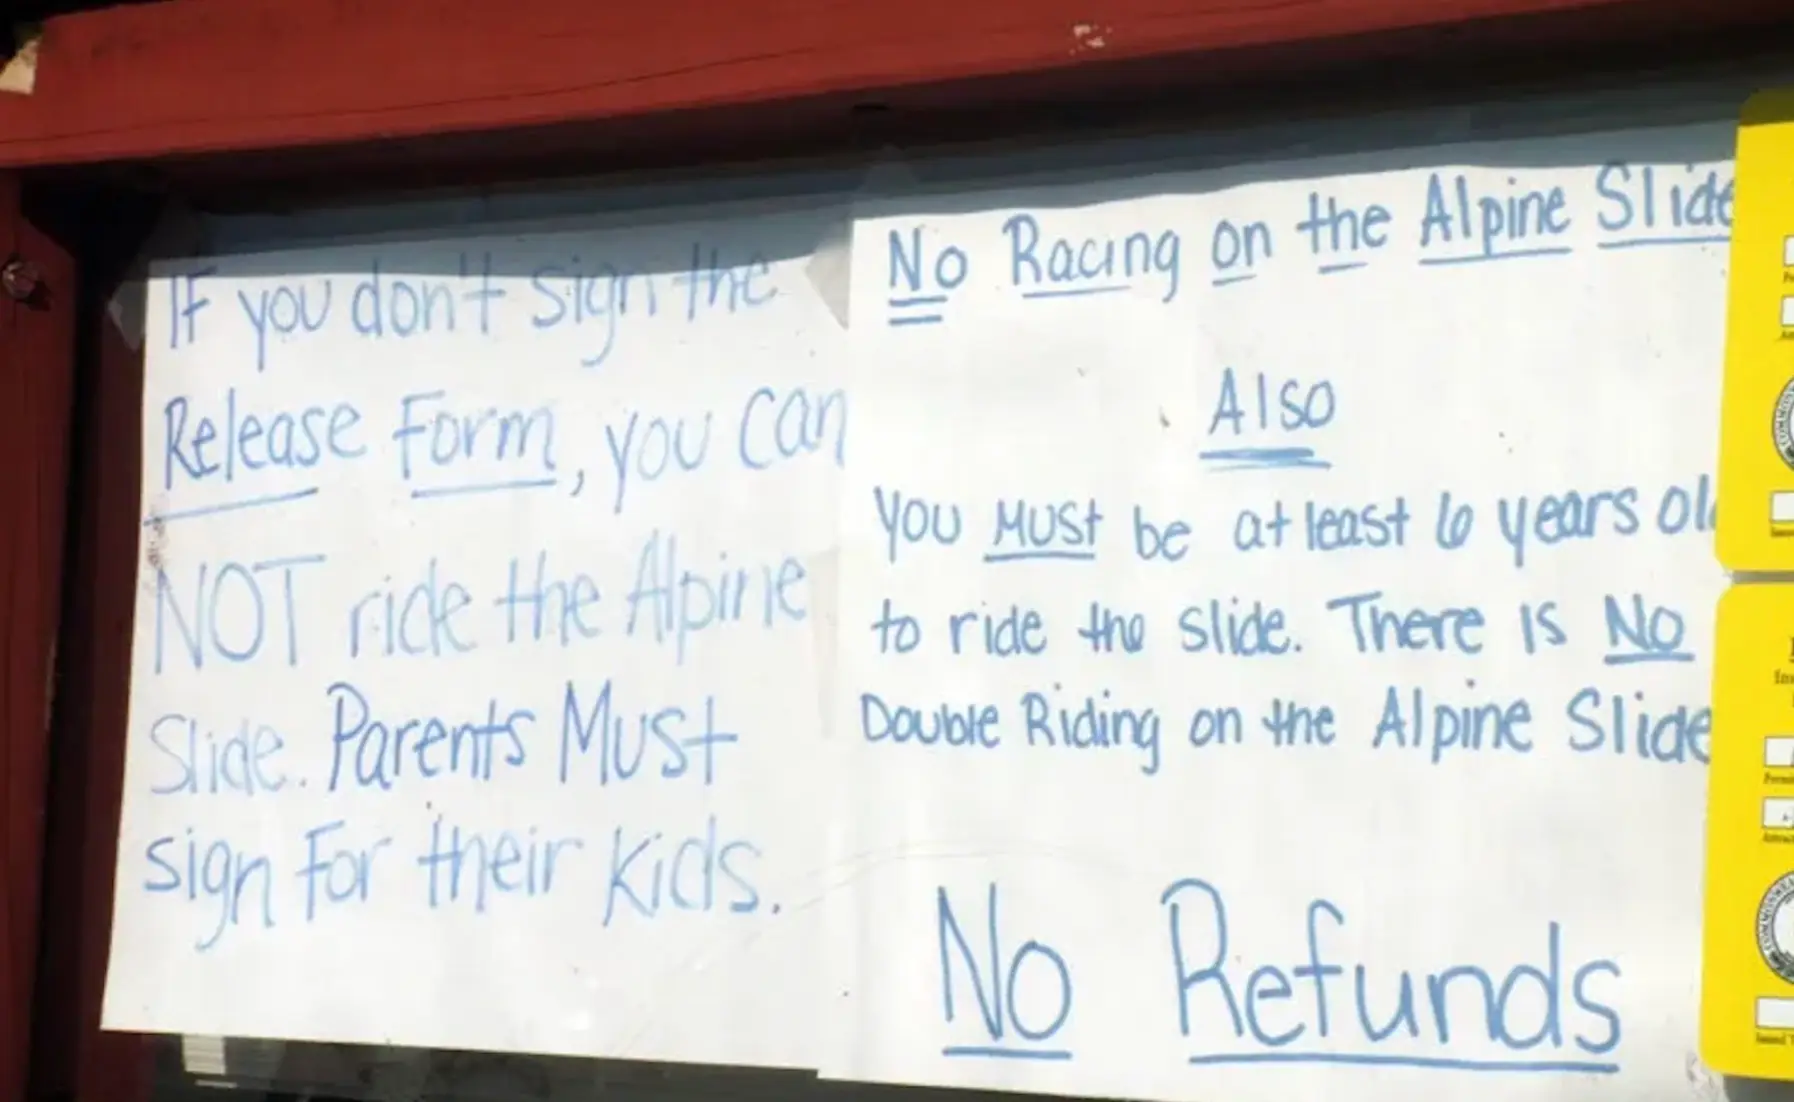 IF you don't sign the
Release Form, you can
NOT ride the Alpine
Slide. Parents Must
sign For their kids.
No Racing on the Alpine Slide
Also
You Must be at least 6 years old
to ride the slide. There is No
Double Riding on the Alpine Slide
No Refunds